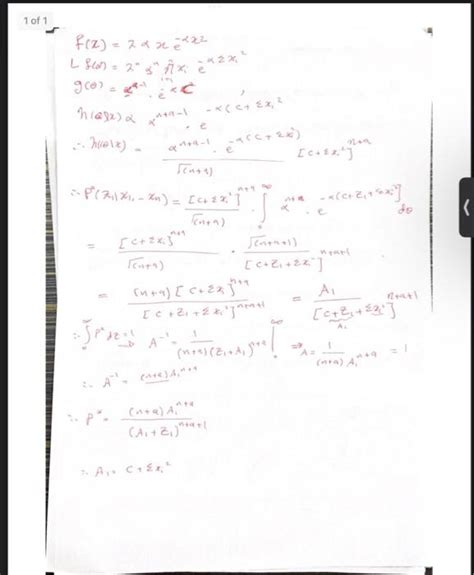 1 of 1
f(x) = 2 α x e^{-αx2}
L f(x) = 2^n α^n π x_i e^{-αΣx_i^2}
g(θ) = α^{a-1} . e^{-αc}
h(α|x) ∝ α^{n+a-1} . e^{-α(c+Σx_i^2)}
∴ h(α|x) = α^{n+a-1} . e^{-α(c+Σx_i^2)} / √(n+a) [c+Σx_i^2]^{n+a}
∴ P*(Z_1|x_1,-x_n) = [c+Σx_i^2]^{n+a} / √(n+a) . ∫_0^∞ α^{n+a} . e^{-α(c+Z_1+Σx_i^2)} dθ
= [c+Σx_i^2]^{n+a} / √(n+a) . √(n+a+1) / [c+Z_1+Σx_i^2]^{n+a+1}
= (n+a) [c+Σx_i^2]^{n+a} / [c+Z_1+Σx_i^2]^{n+a+1} = A_1 / [c+Z_1+Σx_i^2]^{n+a+1}
A_1
∴ ∫_0^∞ P* dZ = 1 A^{-1} = 1 / (n+a)(Z_1+A_1)^{n+a} |_0^∞ A = 1 / (n+a) A_1^{n+a} = 1
∴ A^{-1} = (n+a) A_1^{n+a}
∴ P* = (n+a) A_1^{n+a} / (A_1+Z_1)^{n+a+1}
∴ A_1 = c+Σx_i^2